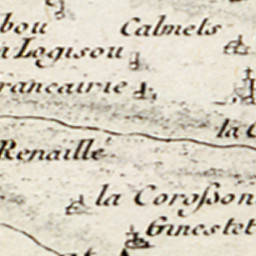 bou
Calmels
Logisou
rancairie
la C
Renaillé
la Coroſson
Ginestet